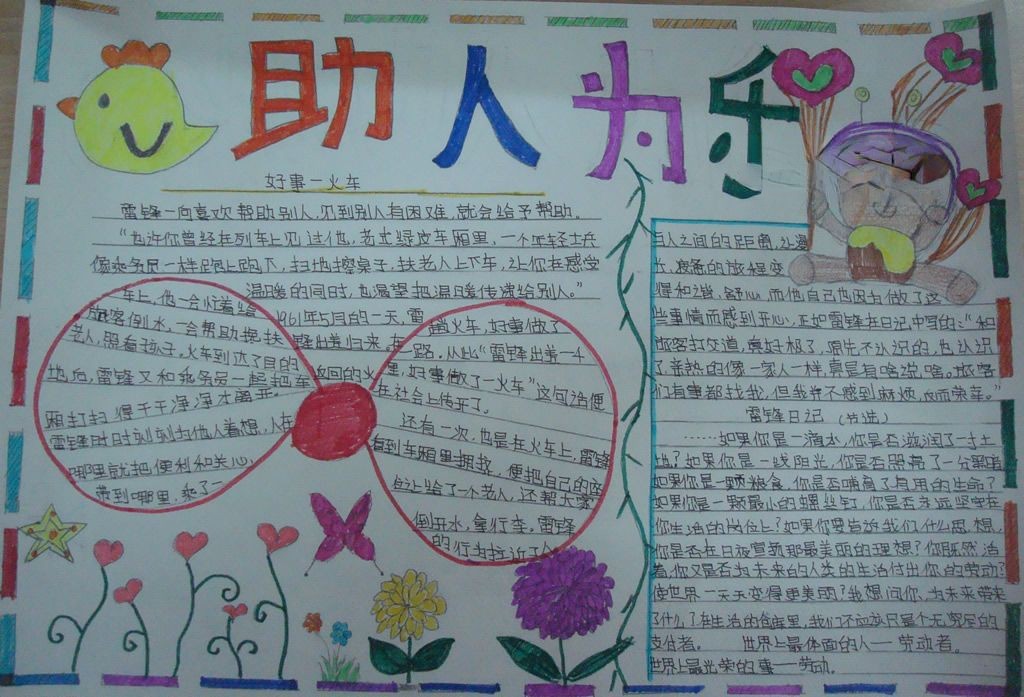 助人为乐
好事一火车
雷锋一向喜欢帮助别人,见到别人有困难,就会给予帮助。
“也许你曾经在列车上见过他,老式绿皮车厢里,一个年轻士兵
像乘务员一样跑上跑下,扫地擦桌子,扶老人上下车,让你在感受
温暖的同时,也渴望把温暖传递给别人。”
1961年5月的一天,雷
锋出差归来,在
返回的火
车上,他一会忙着给
旅客倒水,一会帮助搀扶
老人,照看孩子。火车到达了目的
地后,雷锋又和乘务员一起把车
厢打扫得干干净净才离开。
雷锋时时刻刻为他人着想,人在
哪里就把便利和关心
带到哪里,乘了一
趟火车,好事做了
一路。从此“雷锋出差一千
里,好事做了一火车”这句话便
在社会上传开了。
还有一次,也是在火车上,雷锋
看到车厢里拥挤,便把自己的座
位让给了一个老人,还帮大家
倒开水,拿行李,雷锋
的行为拉近了人
与人之间的距离,让漫
长,疲备的旅程变
得和谐,舒心,而他自己也因为做了这
些事情而感到开心,正如雷锋在日记中写的:“和
旅客打交道,真好极了,原先不认识的,也认识
了,亲热的像一家人一样,真是有啥说啥。旅客
们有事都找我,但我并不感到麻烦,反而荣幸。”
雷锋日记(节选)
……如果你是一滴水,你是否滋润了一寸土
地?如果你是一线阳光,你是否照亮了一分黑暗
如果你是一颗粮食,你是否哺育了有用的生命?
如果你是一颗最小的螺丝钉,你是否永远坚守在
你生活的岗位上?如果你要告诉我们什么思想,
你是否在日夜宣扬那最美丽的理想?你既然活
着,你又是否为未来的人类的生活付出你的劳动?
使世界一天天变得更美丽?我想问你,为未来带来
了什么?在生活的仓库里,我们不应该只是个无穷尽的
支付者。 世界上最体面的人——劳动者。
世界上最光荣的事——劳动。